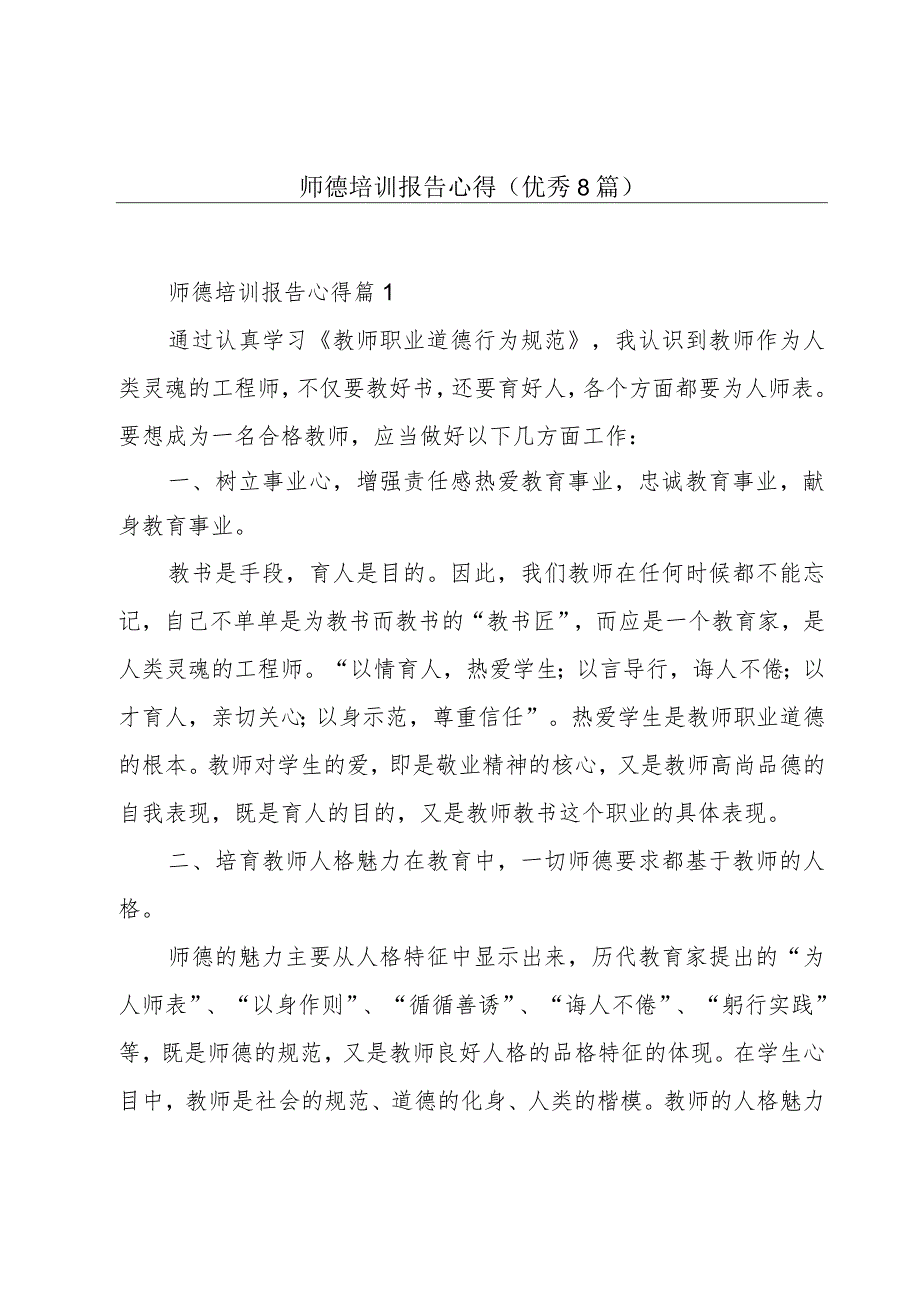 师德培训报告心得（优秀8篇）
师德培训报告心得篇1
通过认真学习《教师职业道德行为规范》，我认识到教师作为人
类灵魂的工程师，不仅要教好书，还要育好人，各个方面都要为人师表。
要想成为一名合格教师，应当做好以下几方面工作：
一、树立事业心，增强责任感热爱教育事业，忠诚教育事业，献
身教育事业。
教书是手段，育人是目的。因此，我们教师在任何时候都不能忘
记，自己不单单是为教书而教书的“教书匠”，而应是一个教育家，是
人类灵魂的工程师。“以情育人，热爱学生；以言导行，诲人不倦；以
才育人，亲切关心；以身示范，尊重信任”。热爱学生是教师职业道德
的根本。教师对学生的爱，即是敬业精神的核心，又是教师高尚品德的
自我表现，既是育人的目的，又是教师教书这个职业的具体表现。
二、培育教师人格魅力在教育中，一切师德要求都基于教师的人
格。
师德的魅力主要从人格特征中显示出来，历代教育家提出的“为
人师表”、“以身作则”、“循循善诱”、“诲人不倦”、“躬行实践”
等，既是师德的规范，又是教师良好人格的品格特征的体现。在学生心
目中，教师是社会的规范、道德的化身、人类的楷模。教师的人格魅力